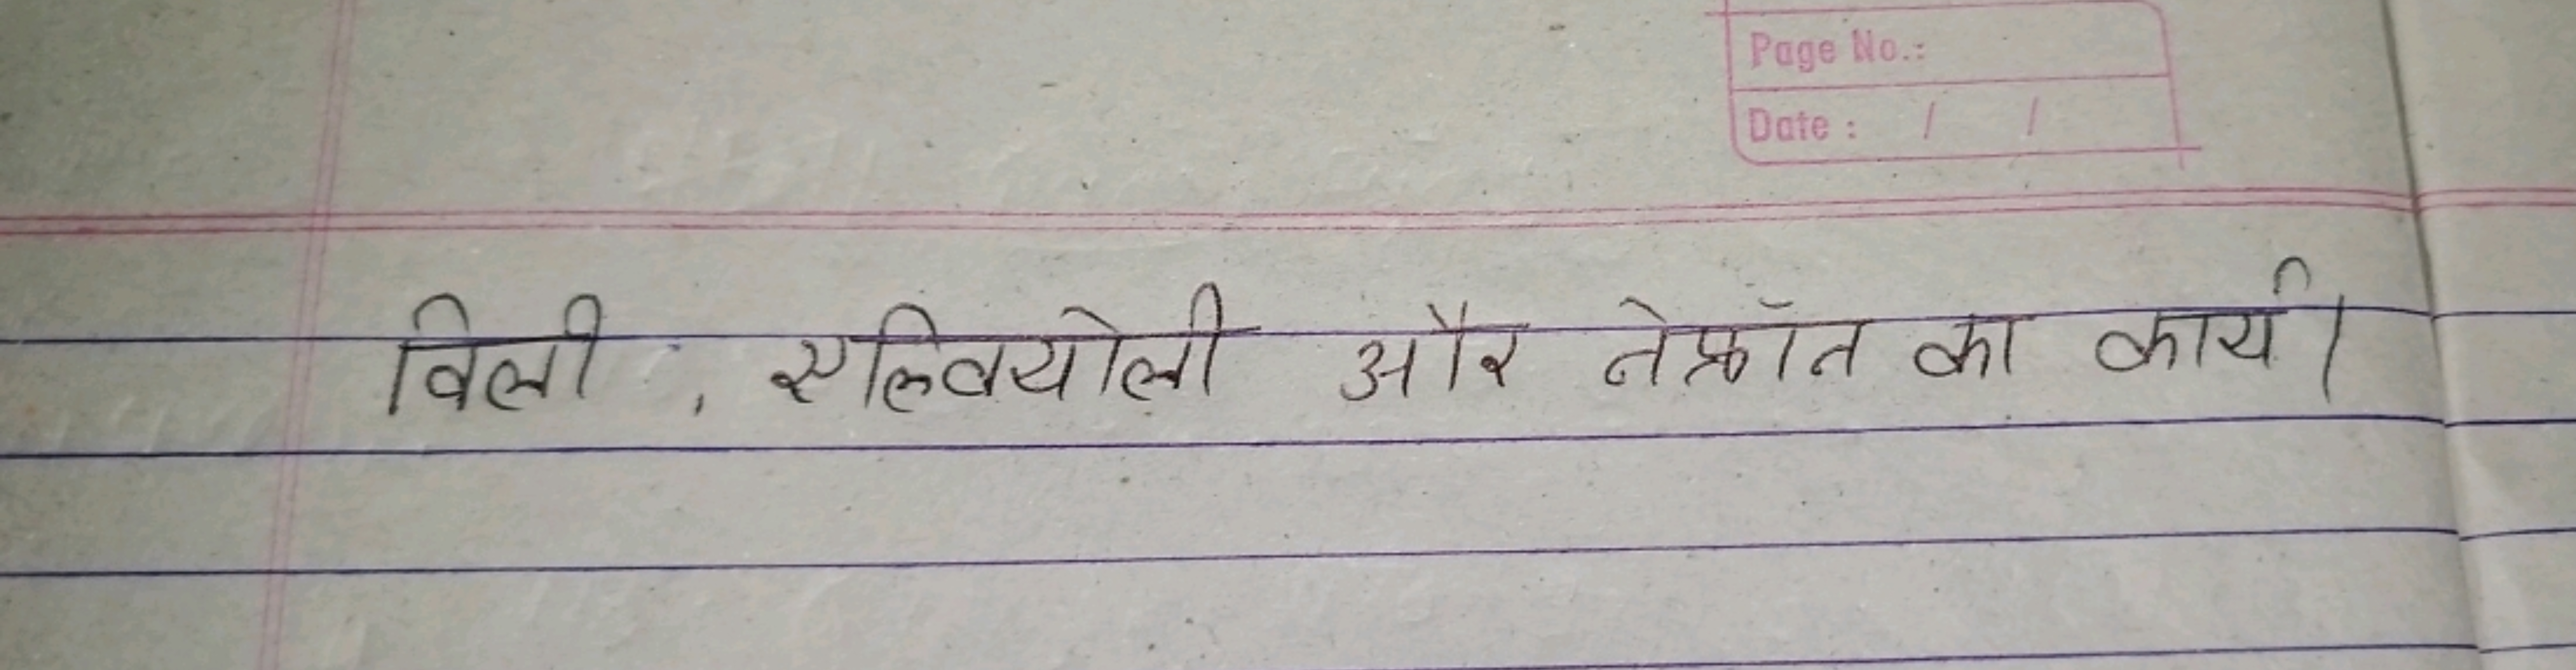 Page No.:
Date : / /
विली , एल्वियोली और नेफ्रॉन का कार्य।